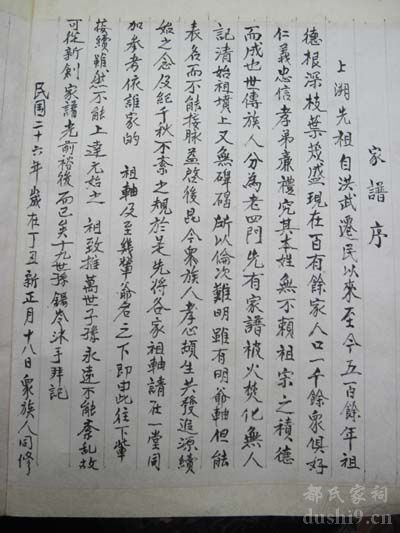 家譜序
上溯先祖自洪武遷民以來至今五百餘年祖
德根深枝葉茂盛現在百有餘家人口一千餘衆俱好
仁義忠信孝弟廉禮究其本姓無不賴祖宗之積德
而成也世傳族人分為老四門先有家譜被火焚化無人
記清始祖墳上又無碑碣所以倫次難明雖有明爺軸但能
表名而不能接脉益啓後昆今衆族人孝心頓生共發追源續
始之念及紀千秋不紊之規於是先將各家祖軸請在一堂同
加參考依誰家的 祖軸及至幾輩爺名之下即由此往下輩
接續雖然不能上達元始之 祖致推萬世子孫永遠不能紊乱故
可從新創家譜光前裕後而已矣十九世孫錫 沐手拜記
民國二十六年 歲在丁丑新正月十八日衆族人同修
都氏家祠
dushi9.cn